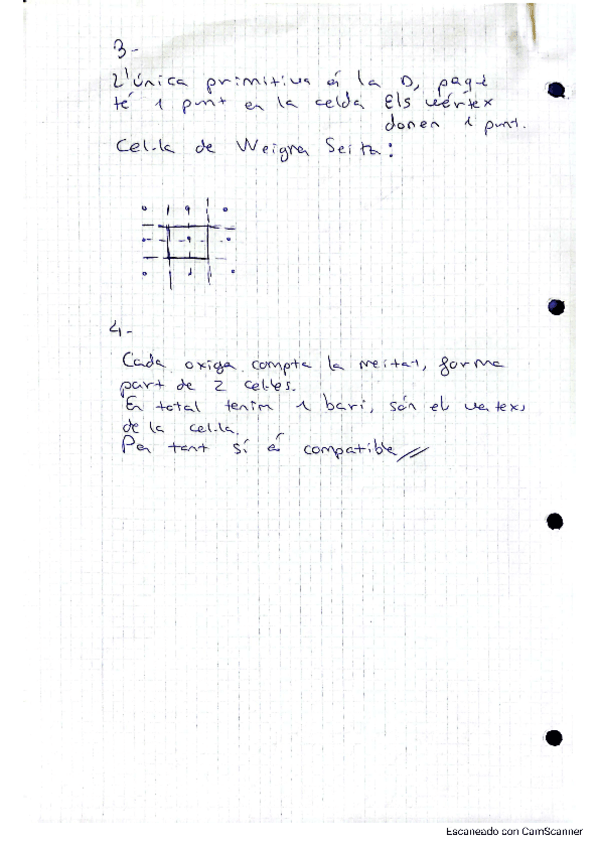 3-
L'única primitiva és la D, paqué
té 1 punt en la celda Els vértex
donen 1 punt.
Cel·la de Weigna Seita:
4-
Cada oxiga compta la meitat, forma
part de 2 cel·les.
En total tenim 1 bari, són el vertexs
de la cel·la.
Per tant sí és compatible
Escaneado con CamScanner